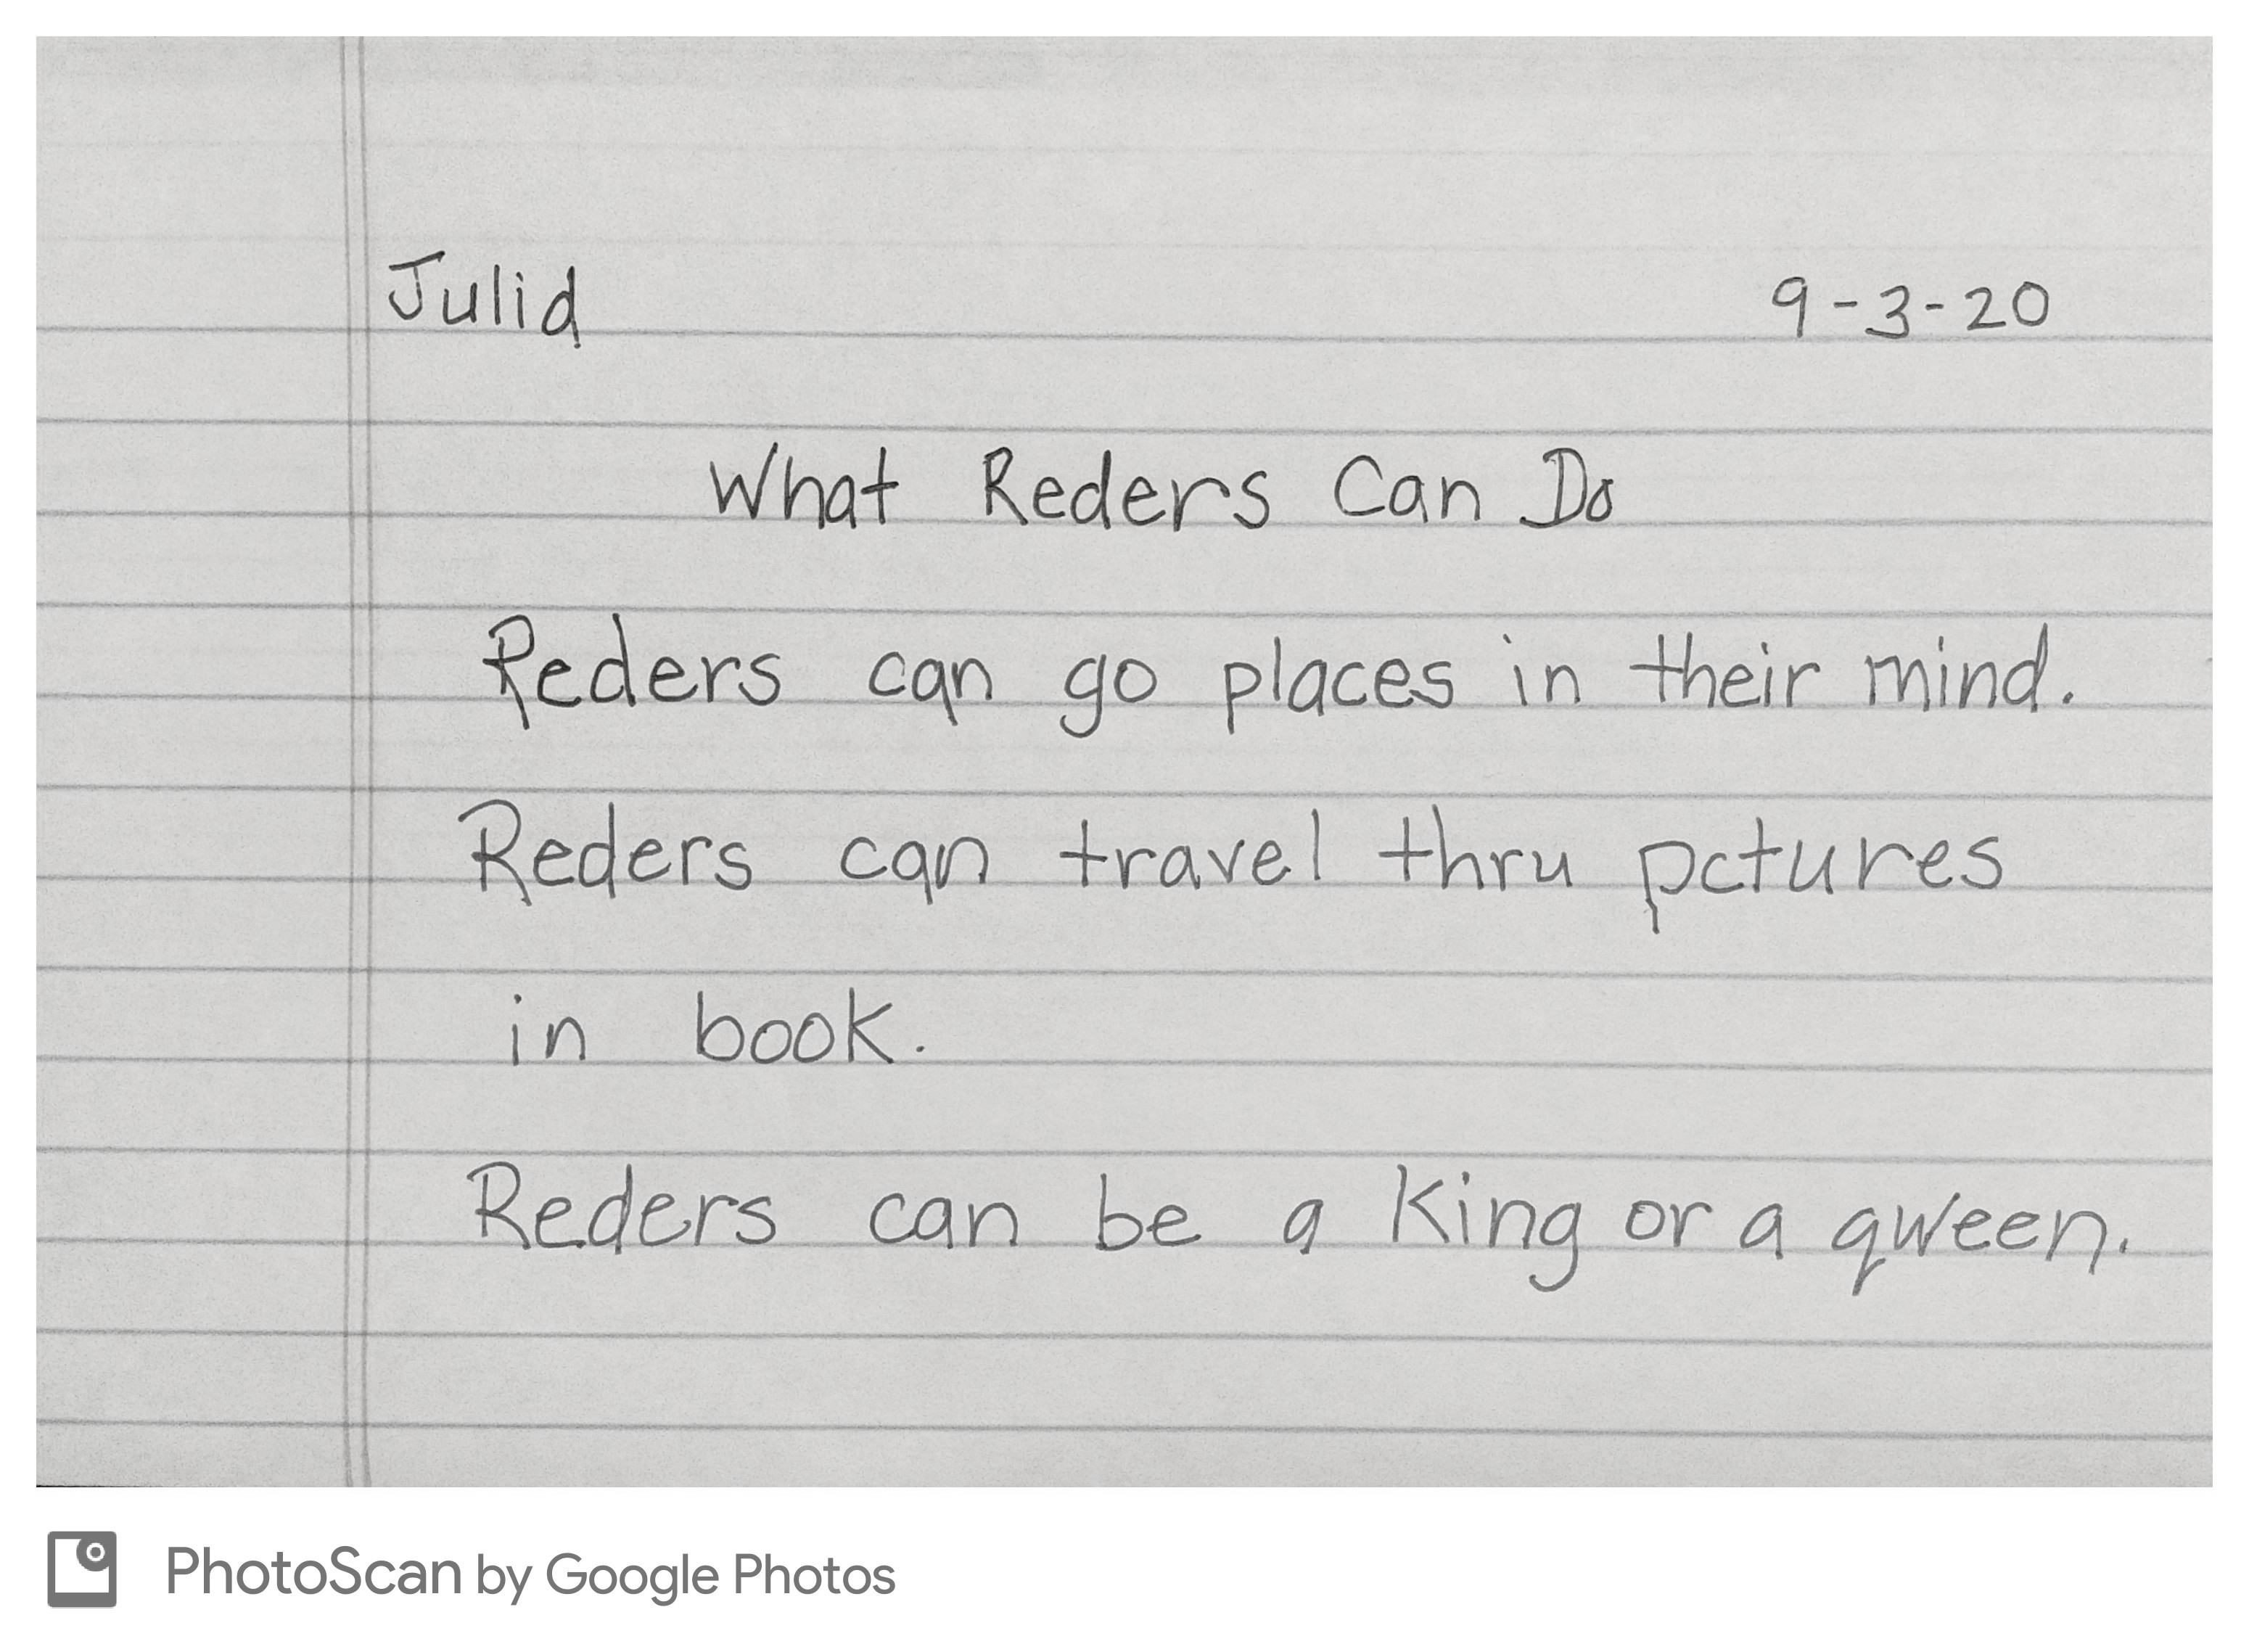 Julid 9-3-20
What Reders Can Do
Reders can go places in their mind.
Reders can travel thru pctures
in book.
Reders can be a King or a qween.
PhotoScan by Google Photos